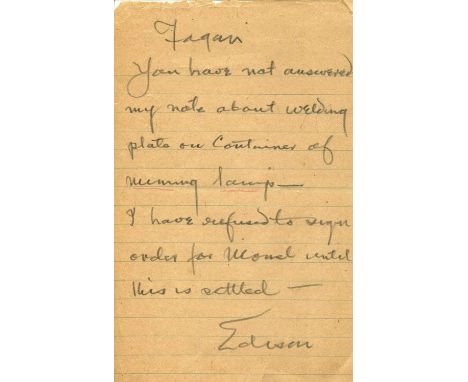 Fagan
You have not answered
my note about welding
plate on Container of
mining lamp—
I have refused to sign
order for Monel until
this is settled —
Edison